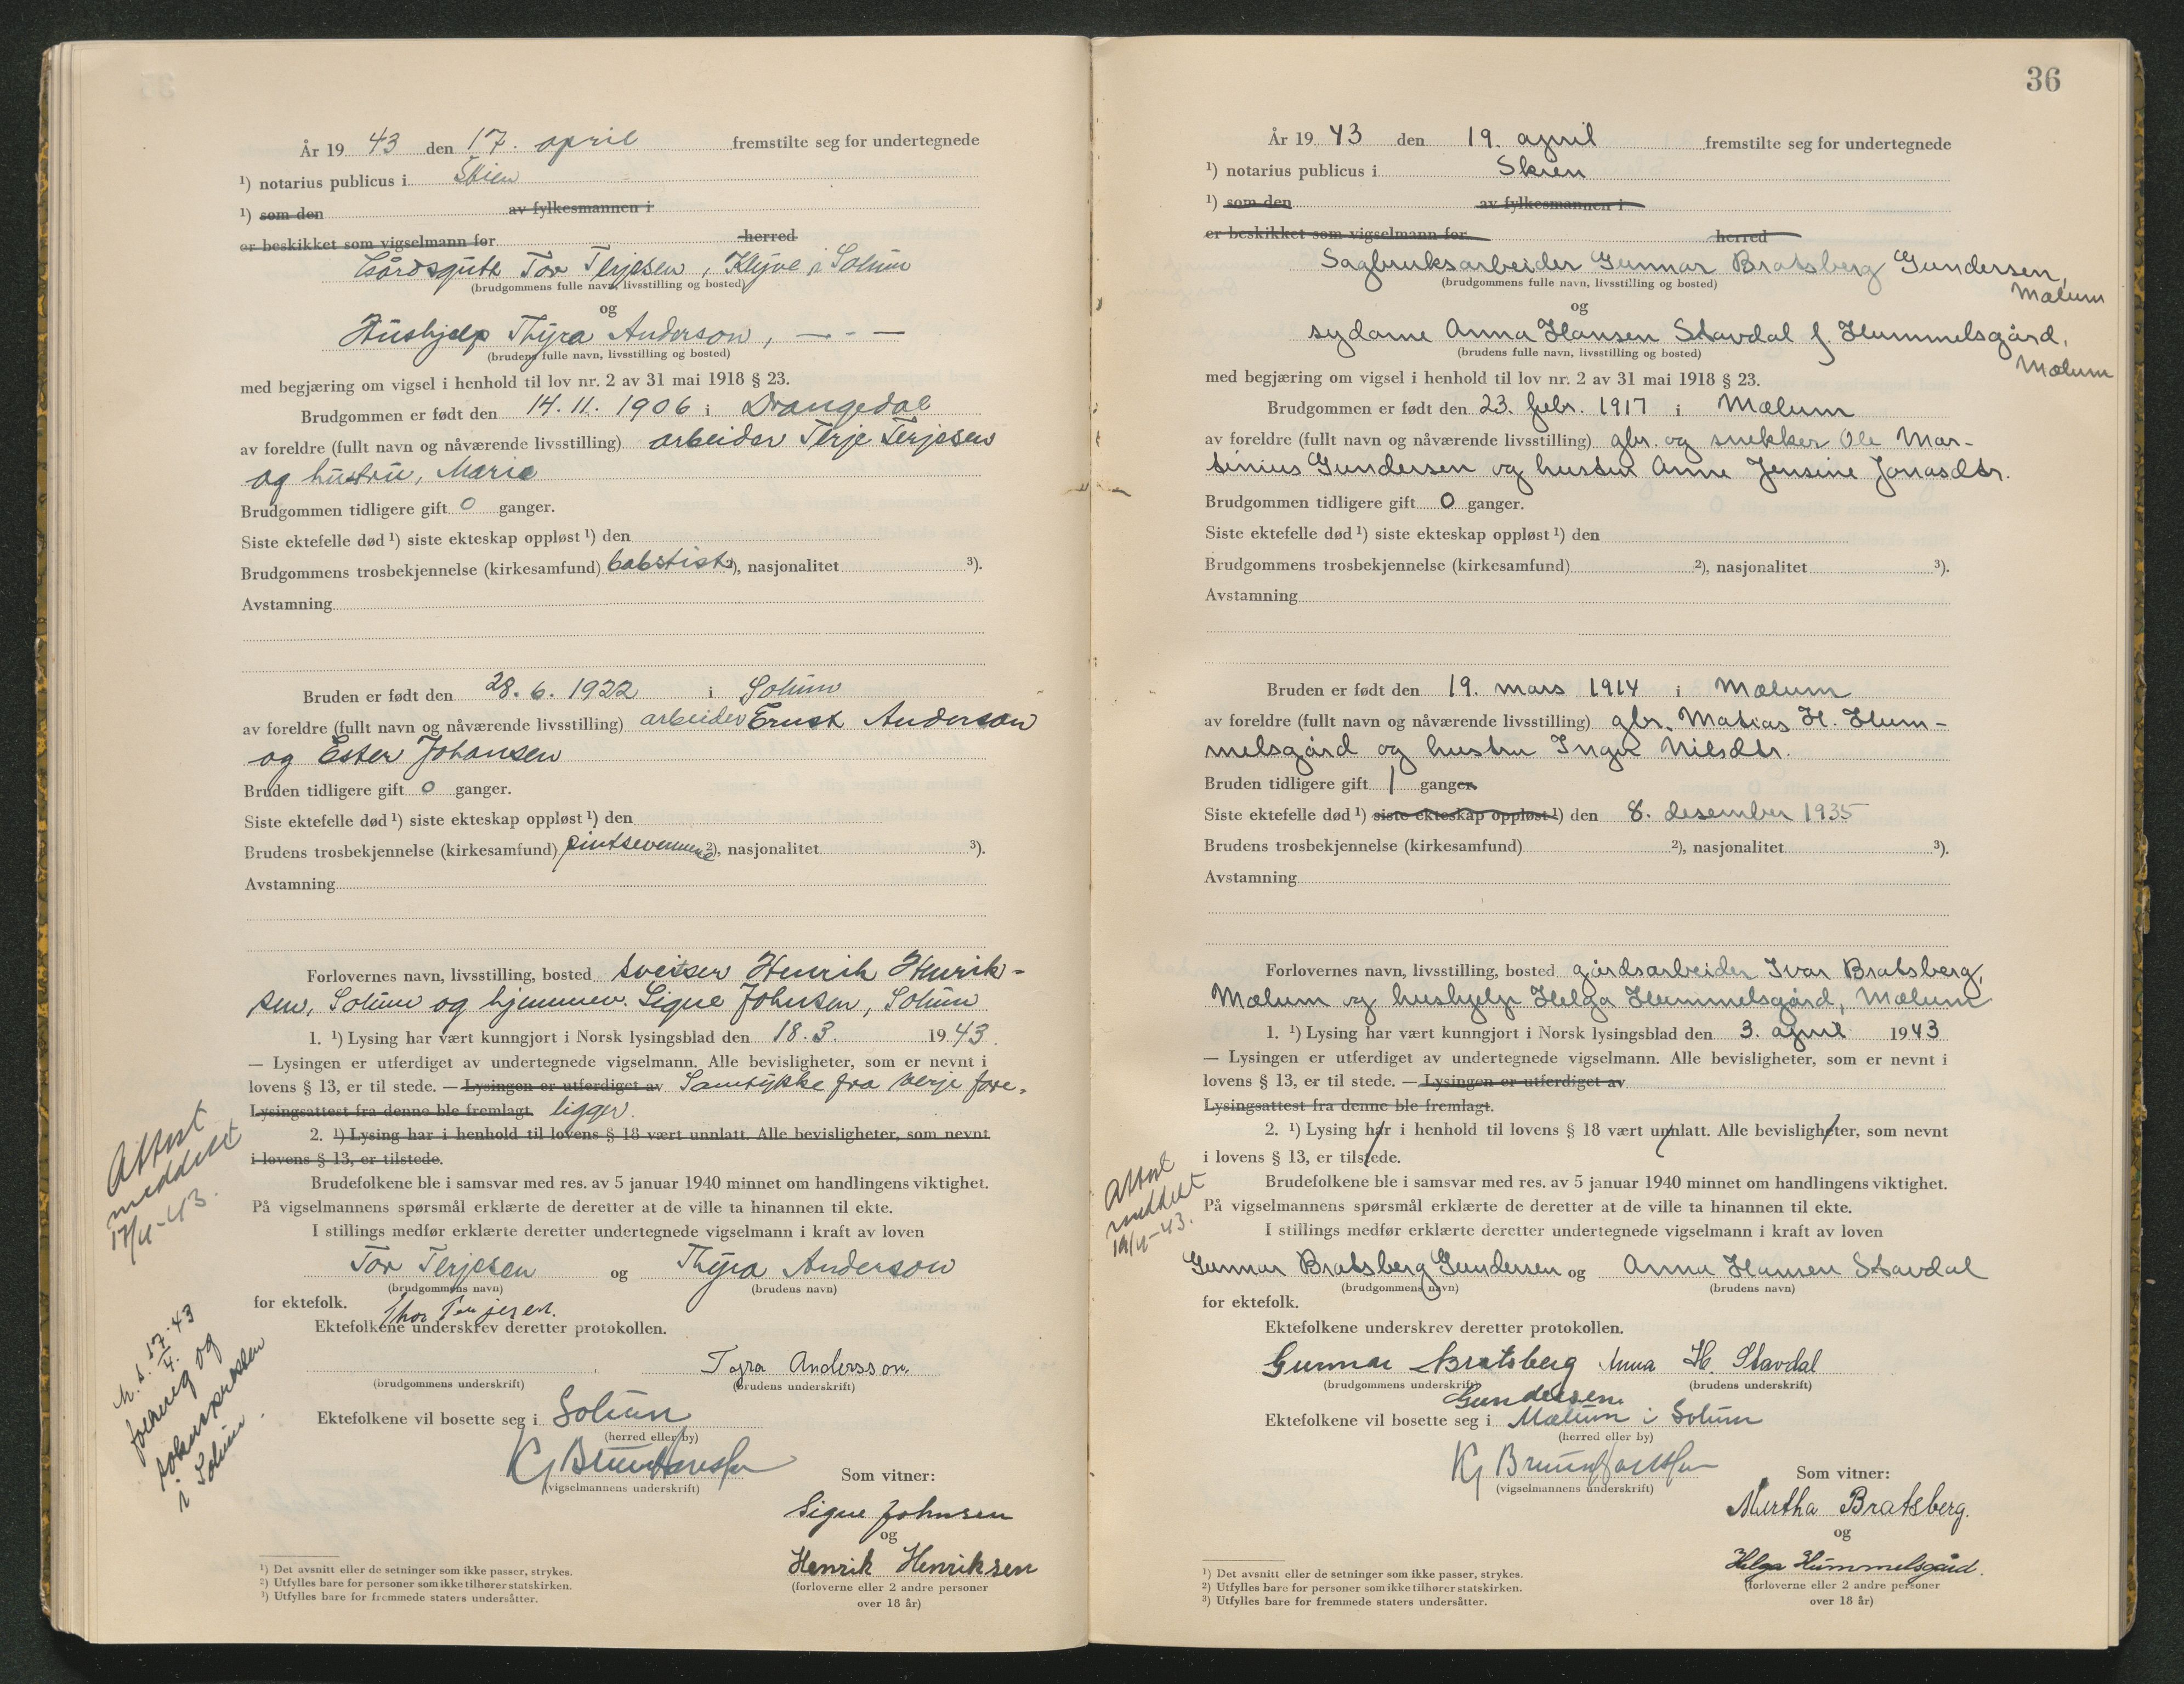 År 19 43 den 17. april fremstilte seg for undertegnede
¹) notarius publicus i Skien
¹) som den av fylkesmannen i
er beskikket som vigselmann for herred
Gårdsgutt Tor Terjesen, Klyve i Solum
(brudgommens fulle navn, livsstilling og bosted)
og
Hushjelp Thyra Anderson, — - —
(brudens fulle navn, livsstilling og bosted)
med begjæring om vigsel i henhold til lov nr. 2 av 31 mai 1918 § 23.
Brudgommen er født den 14. 11. 1906 i Drangedal
av foreldre (fullt navn og nåværende livsstilling) arbeider Terje Terjesen
og hustru, Marie
Brudgommen tidligere gift 0 ganger.
Siste ektefelle død ¹) siste ekteskap oppløst ¹) den
Brudgommens trosbekjennelse (kirkesamfund) babstist ²), nasjonalitet ³).
Avstamning
Bruden er født den 28. 6. 1922 i Solum
av foreldre (fullt navn og nåværende livsstilling) arbeider Ernst Anderson
og Ester Johansen
Bruden tidligere gift 0 ganger.
Siste ektefelle død ¹) siste ekteskap oppløst ¹) den
Brudens trosbekjennelse (kirkesamfund) pintsevennene ²), nasjonalitet ³).
Avstamning
Forlovernes navn, livsstilling, bosted sveiser Henrik Henrik-
sen, Solum og hjemmev. Signe Johnsen, Solum
1. ¹) Lysing har vært kunngjort i Norsk lysingsblad den 18. 3. 1943.
— Lysingen er utferdiget av undertegnede vigselmann. Alle bevisligheter, som er nevnt i
lovens § 13, er til stede. — Lysingen er utferdiget av Samtykke fra verje fore-
Lysingsattest fra denne ble fremlagt. ligger.
2. ¹) Lysing har i henhold til lovens § 18 vært unnlatt. Alle bevisligheter, som nevnt
i lovens § 13, er tilstede.
Attest
meddelt
17/4-43.
Brudefolkene ble i samsvar med res. av 5 januar 1940 minnet om handlingens viktighet.
På vigselmannens spørsmål erklærte de deretter at de ville ta hinannen til ekte.
I stillings medfør erklærte deretter undertegnede vigselmann i kraft av loven
Tor Terjesen og Thyra Anderson
(brudgommens navn) (brudens navn)
for ektefolk.
Thor Terjesen.
Ektefolkene underskrev deretter protokollen.
Tyra Andersson.
(brudgommens underskrift) (brudens underskrift)
Ektefolkene vil bosette seg i Solum
(herred eller by)
(vigselmannens underskrift)
M. s. 17/4. 43
og
i Solum.
Som vitner:
Signe Johnsen
og
Henrik Henriksen
(forloverne eller 2 andre personer
over 18 år)
¹) Det avsnitt eller de setninger som ikke passer, strykes.
²) Utfylles bare for personer som ikke tilhører statskirken.
³) Utfylles bare for fremmede staters undersåtter.
36
År 19 43 den 19. april fremstilte seg for undertegnede
¹) notarius publicus i Skien
¹) som den av fylkesmannen i
er beskikket som vigselmann for herred
Sagbruksarbeider Gunnar Bratsberg Gundersen,
Mælum
(brudgommens fulle navn, livsstilling og bosted)
og
sydame Anna Hansen Stavdal f. Hummelsgård,
Mælum
(brudens fulle navn, livsstilling og bosted)
med begjæring om vigsel i henhold til lov nr. 2 av 31 mai 1918 § 23.
Brudgommen er født den 23. febr. 1917 i Mælum
av foreldre (fullt navn og nåværende livsstilling) gbr. og snekker Ole Mar-
tinius Gundersen og hustru Anne Jensine Jonasdtr.
Brudgommen tidligere gift 0 ganger.
Siste ektefelle død ¹) siste ekteskap oppløst ¹) den
Brudgommens trosbekjennelse (kirkesamfund) ²), nasjonalitet ³).
Avstamning
Bruden er født den 19. mars 1914 i Mælum
av foreldre (fullt navn og nåværende livsstilling) gbr. Matias H. Hum-
melsgård og hustru Inger Nilsdtr.
Bruden tidligere gift 1 ganger.
Siste ektefelle død ¹) siste ekteskap oppløst ¹) den 8. desember 1935
Brudens trosbekjennelse (kirkesamfund) ²), nasjonalitet ³).
Avstamning
Forlovernes navn, livsstilling, bosted gårdsarbeider Ivar Bratsberg,
Mælum og hushjelp Helga Hummelsgård, Mælum
1. ¹) Lysing har vært kunngjort i Norsk lysingsblad den 3. april 1943
— Lysingen er utferdiget av undertegnede vigselmann. Alle bevisligheter, som er nevnt i
lovens § 13, er til stede. — Lysingen er utferdiget av
Lysingsattest fra denne ble fremlagt.
2. ¹) Lysing har i henhold til lovens § 18 vært unnlatt. Alle bevisligheter, som nevnt
i lovens § 13, er tilstede.
Attest
meddelt
19/4-43.
Brudefolkene ble i samsvar med res. av 5 januar 1940 minnet om handlingens viktighet.
På vigselmannens spørsmål erklærte de deretter at de ville ta hinannen til ekte.
I stillings medfør erklærte deretter undertegnede vigselmann i kraft av loven
Gunnar Bratsberg Gundersen og Anna Hansen Stavdal
(brudgommens navn) (brudens navn)
for ektefolk.
Ektefolkene underskrev deretter protokollen.
Gunnar Bratsberg Anna H. Stavdal
(brudgommens underskrift) (brudens underskrift)
Gundersen.
Ektefolkene vil bosette seg i Mælum i Solum
(herred eller by)
(vigselmannens underskrift)
Som vitner:
Mertha Bratsberg.
og
Helga Hummelsgård.
(forloverne eller 2 andre personer
over 18 år)
¹) Det avsnitt eller de setninger som ikke passer, strykes.
²) Utfylles bare for personer som ikke tilhører statskirken.
³) Utfylles bare for fremmede staters undersåtter.